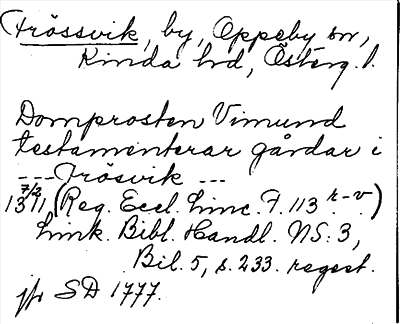 Frössvik, by, Oppeby sn,
Kinda hd, Österg. l.
Domprosten Vimund
testamenterar gårdar i
--- Frösvik ---
7/2 1311 (Reg. Eccl. Linc. F. 113 r-v)
Link. Bibl. Handl. NS: 3,
Bil. 5, s. 233. regest.
jfr SD 1777.